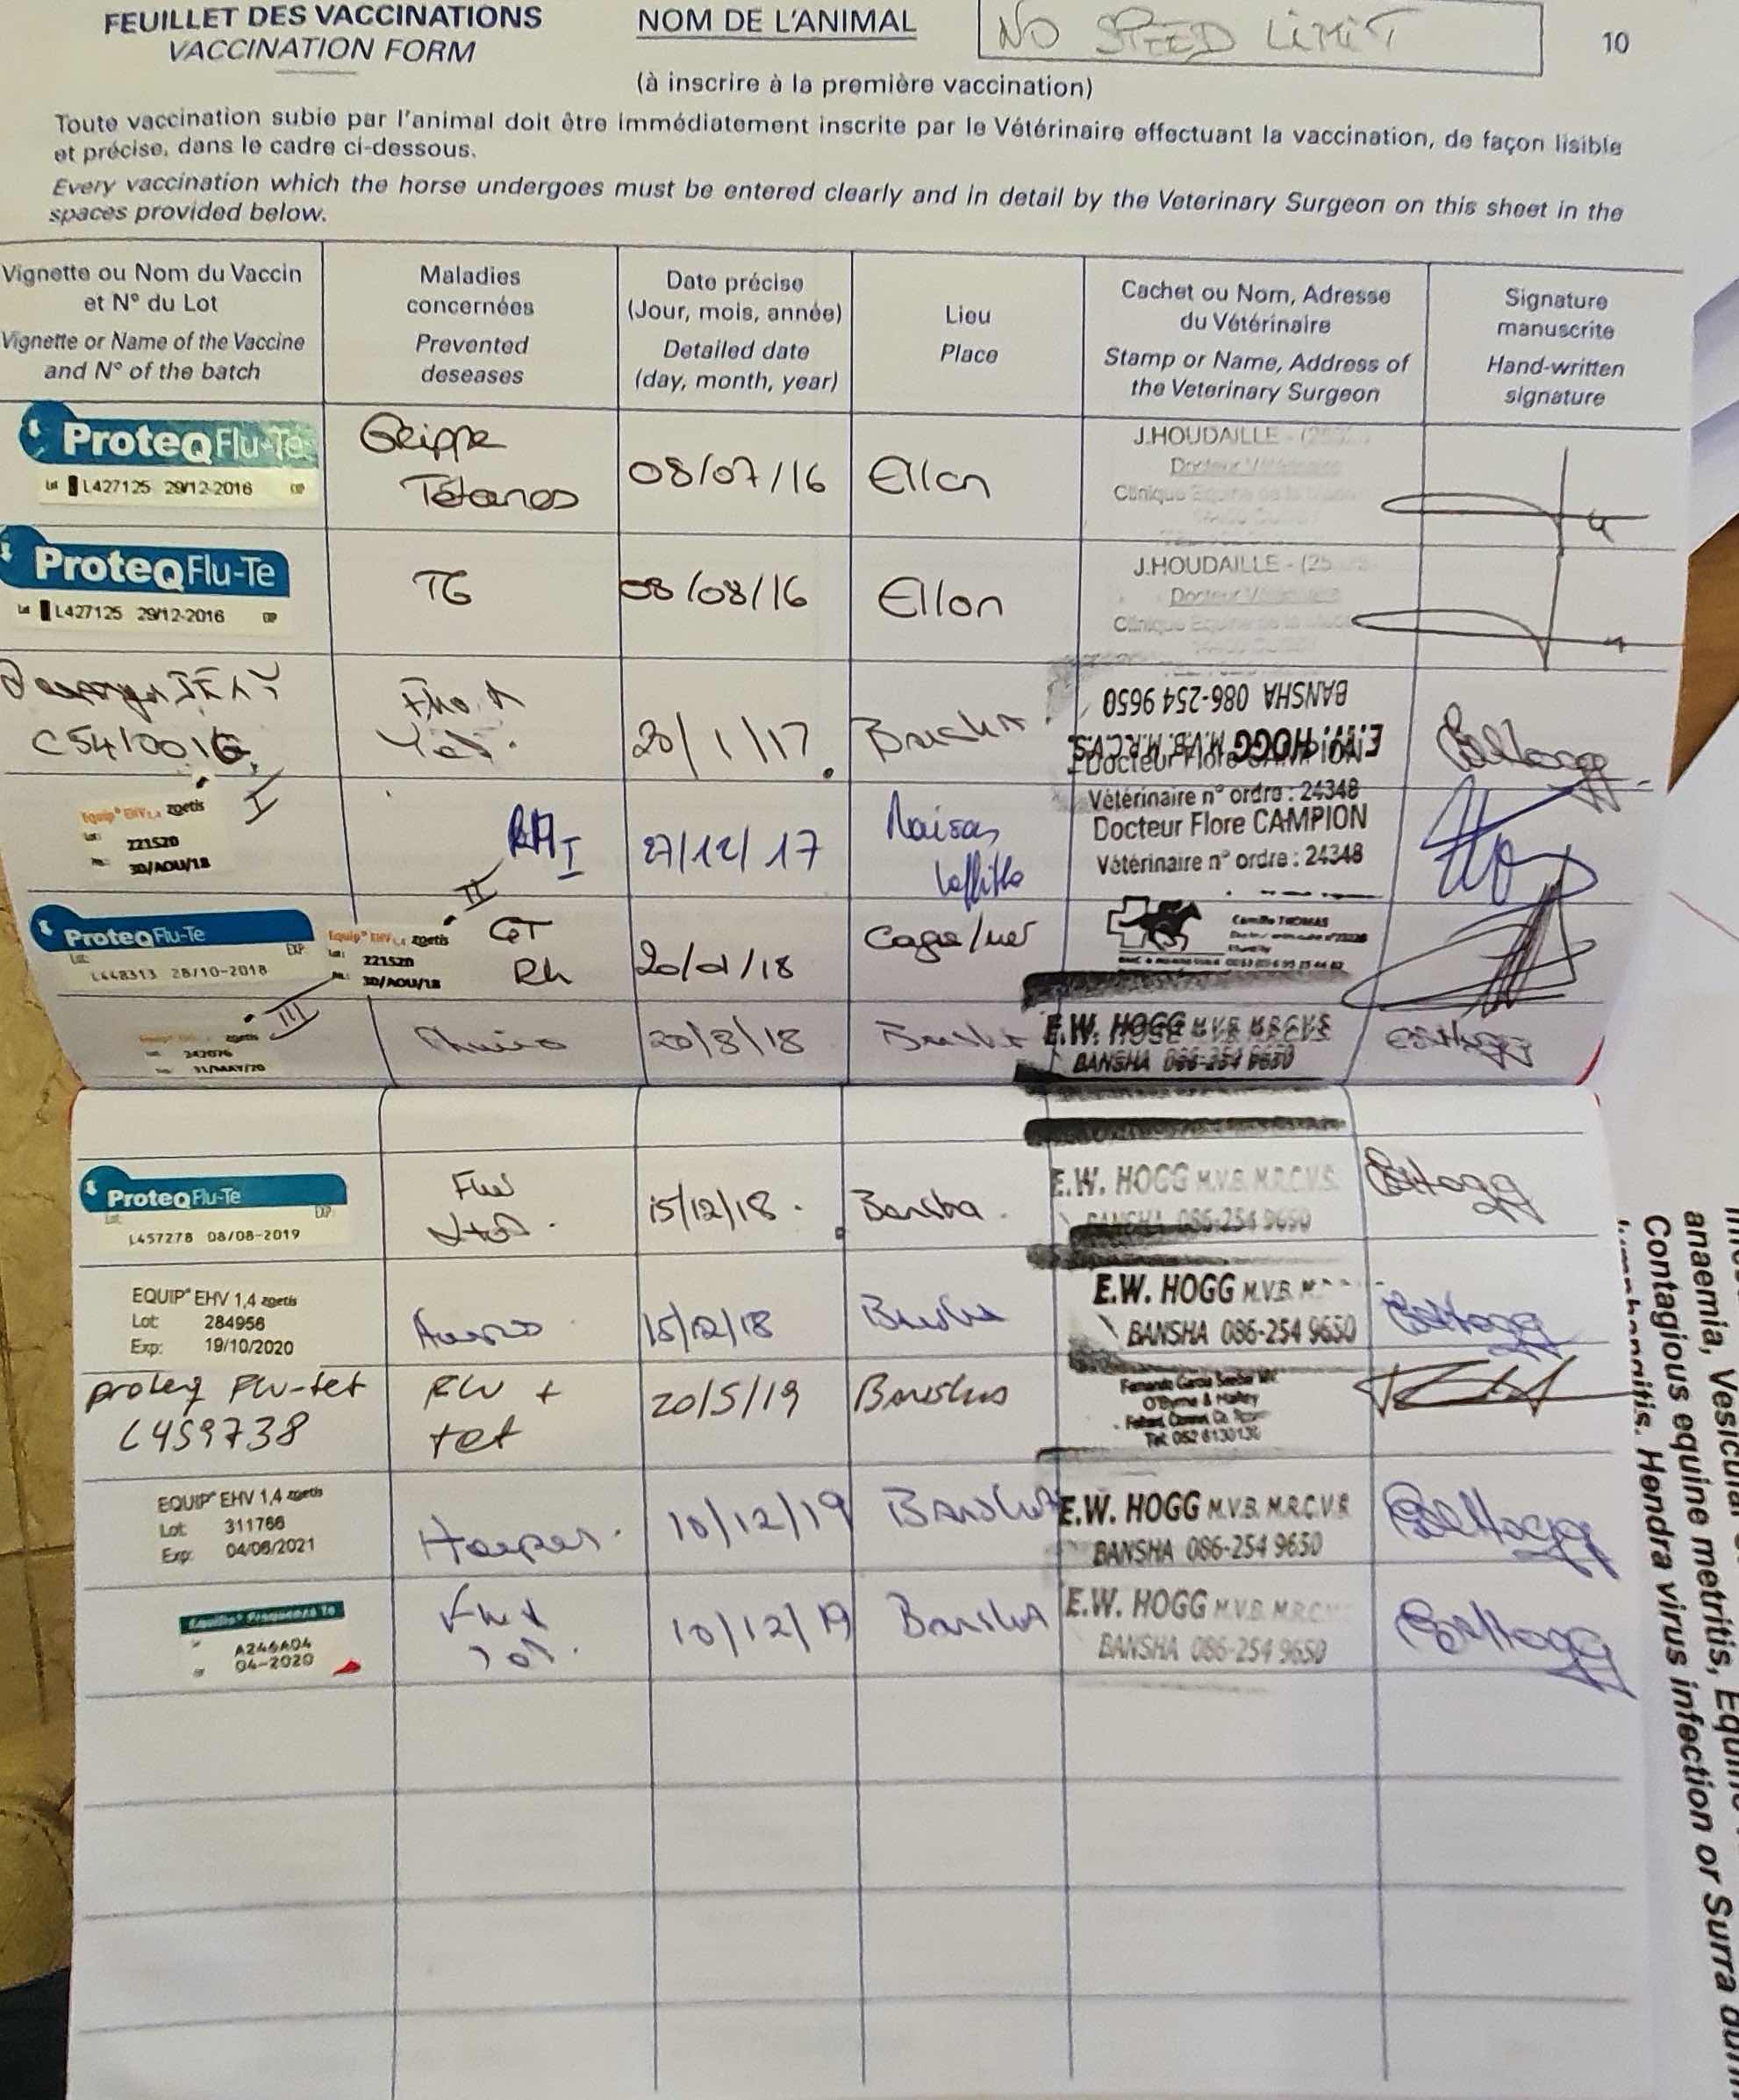 FEUILLET DES VACCINATIONS
VACCINATION FORM
NOM DE L'ANIMAL
NO SPEED LIMIT
10
(à inscrire à la première vaccination)
Toute vaccination subie par l'animal doit être immédiatement inscrite par le Vétérinaire effectuant la vaccination, de façon lisible
et précise, dans le cadre ci-dessous.
Every vaccination which the horse undergoes must be entered clearly and in detail by the Veterinary Surgeon on this sheet in the
spaces provided below.
Vignette ou Nom du Vaccin
et N° du Lot
Vignette or Name of the Vaccine
and N° of the batch
Maladies
concernées
Prevented
deseases
Date précise
(Jour, mois, année)
Detailed date
(day, month, year)
Lieu
Place
Cachet ou Nom, Adresse
du Vétérinaire
Stamp or Name, Address of
the Veterinary Surgeon
Signature
manuscrite
Hand-written
signature
ProteqFlu-Te
Lot L427125 29/12-2016 EXP
Grippe
Tétanos
08/07/16
Ellon
J.HOUDAILLE
Docteur Vétérinaire
Clinique Equine de la
ProteqFlu-Te
Lot L427125 29/12-2016 EXP
TG
08/08/16
Ellon
J.HOUDAILLE - (25
Docteur Vétérinaire
Clinique Equine de la
C541001G
20/1/17
Bansha
BANSHA 086-254 9650
E.W. HOGG M.V.B. M.R.C.V.S.
I
Equip EHV 1,4 zoetis
Lot: 221520
30/AOU/18
RH I
27/12/17
Maisons
Laffitte
Docteur Flore CAMPION
Vétérinaire n° ordre : 24348
Docteur Flore CAMPION
Vétérinaire n° ordre : 24348
ProteqFlu-Te
Lot: EXP
L448313 28/10-2018
II
Equip EHV 1,4 zoetis
Lot: 221520
30/AOU/18
GT
Rh
20/01/18
Cagnes/mer
Camille THOMAS
III
zoetis
31/MAY/20
20/8/18
Bansha
E.W. HOGG M.V.B. M.R.C.V.S
BANSHA 086-254 9650
ProteqFlu-Te
Lot: EXP
L457278 08/08-2019
Flu
15/12/18.
Bansha.
E.W. HOGG M.V.B. M.R.C.V.S.
BANSHA 086-254 9650
EQUIP EHV 1,4 zoetis
Lot: 284956
Exp: 19/10/2020
15/12/18
Bansha
E.W. HOGG M.V.B.
BANSHA 086-254 9650
proteq FLU-tet
L459738
FLU +
tet
20/5/19
Bansha
O'Byrne & Halley
EQUIP EHV 1,4 zoetis
Lot: 311766
Exp: 04/06/2021
Herpes.
10/12/19
Bansha
E.W. HOGG M.V.B. M.R.C.V.S
BANSHA 086-254 9650
Equilis Prequenza Te
A246A04
04-2020
10/12/19
Bansha
E.W. HOGG M.V.B. M.R.C.
BANSHA 086-254 9650
anaemia, Vesicular
Contagious equine metritis, Equine
Hendra virus infection or Surra